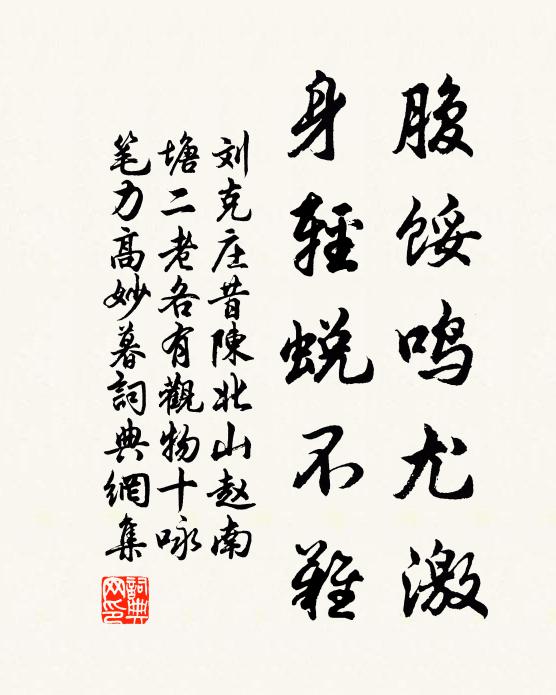 腹馁鸣尤激
身轻蜕不难
刘克庄昔陳北山赵南
塘二老各有觀物十咏
笔力高妙暮詞典網集
詞典網印